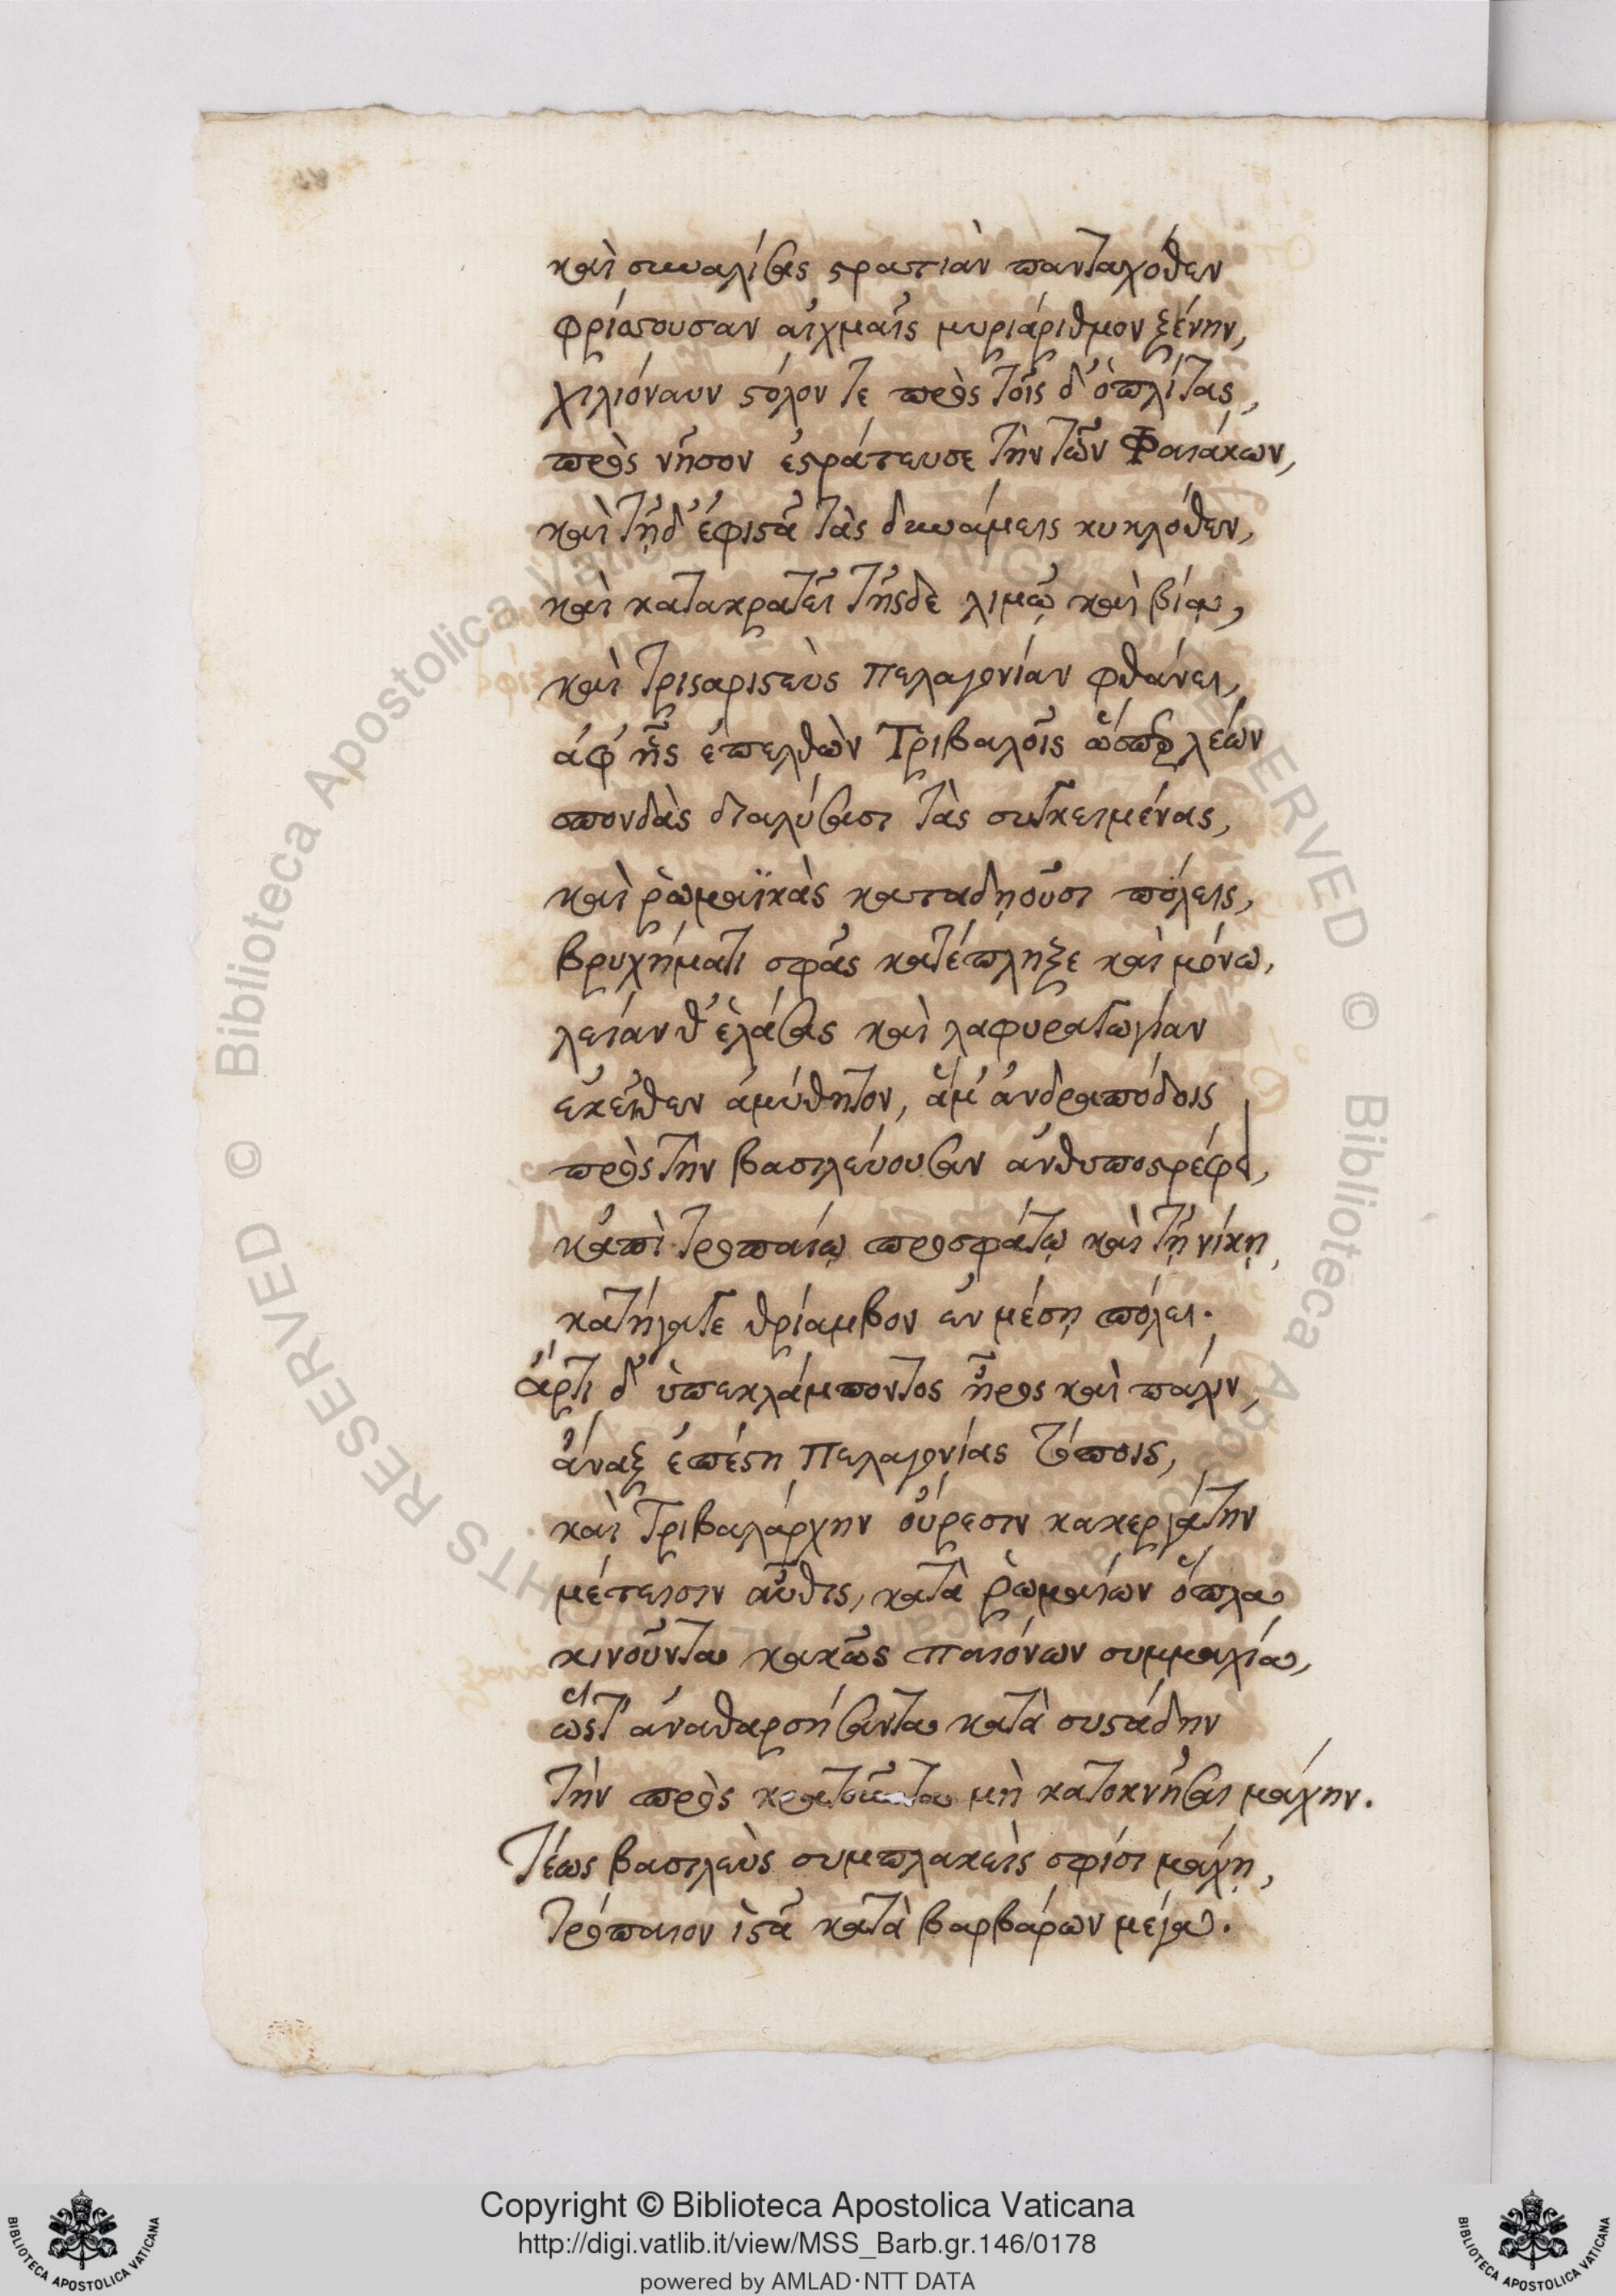 καὶ συναλίσας στρατιὰν πανταχόθεν
φρίσσουσαν αἰχμαῖς μυριάριθμον ξένην,
χιλιόναυν στόλον τε πρὸς τοῖς δ' ὁπλίτας,
πρὸς νῆσον ἐστράτευσε τὴν τῶν Φαιάκων,
καὶ τῇδ' ἐφιστᾶ τὰς δυνάμεις κυκλόθεν,
καὶ κατακρατεῖ τῆσδε λιμῷ καὶ βίᾳ,
καὶ τρισαριστεὺς Πελαγονίαν φθάνει,
ἀφ' ἧς ἐπελθὼν Τριβαλοῖς ὥσπερ λέων
σπονδὰς διαλύσασι τὰς συγκειμένας,
καὶ ῥωμαϊκὰς καταδῃοῦσι πόλεις,
βρυχήματι σφᾶς κατέπληξε καὶ μόνω,
λείαν θ' ἐλάσας καὶ λαφυραγωγίαν
ἐκεῖθεν ἀμύθητον, ἅμ' ἀνδραπόδοις
πρὸς τὴν βασιλεύουσαν ἀνθυποστρέφει,
κἀπὶ τροπαίῳ προσφάτῳ καὶ τῇ νίκῃ,
κατήγαγε θρίαμβον ἐν μέσῃ πόλει.
ἄρτι δ' ὑπεκλάμποντος ἦρος καὶ πάλιν,
ἄναξ ἐπέστη Πελαγονίας τόποις,
καὶ Τριβαλάρχην οὔρεσιν κακεργάτην
μέτεισιν αὖθις, κατὰ ῥωμαίων ὅπλα
κινοῦντα κακῶς παιόνων συμμαχία,
ὥστ' ἀναθαρσήσαντα κατὰ συστάδην
τὴν πρὸς κρατοῦντα μὴ κατοκνῆσαι μάχην.
Τέως βασιλεὺς συμπλακεὶς σφίσι μάχῃ,
τρόπαιον ἱστᾶ κατὰ βαρβάρων μέγα.
Copyright © Biblioteca Apostolica Vaticana
http://digi.vatlib.it/view/MSS_Barb.gr.146/0178
powered by AMLAD·NTT DATA